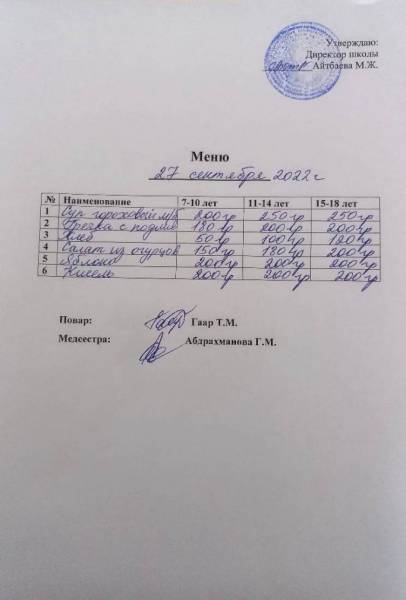 Утверждаю:
Директор школы
Айтбаева М.Ж.
Меню
27 сентября 2022 г
№ Наименование 7-10 лет 11-14 лет 15-18 лет
1 Суп гороховый м/б 200 гр 250 гр 250 гр
2 Гречка с подлив 180 гр 200 гр 200 гр
3 Хлеб 50 гр 100 гр 120 гр
4 Салат из огурцов 150 гр 180 гр 200 гр
5 Яблоко 200 гр 200 гр 200 гр
6 Кисель 200 гр 200 гр 200 гр
Повар: Гаар Т.М.
Медсестра: Абдрахманова Г.М.